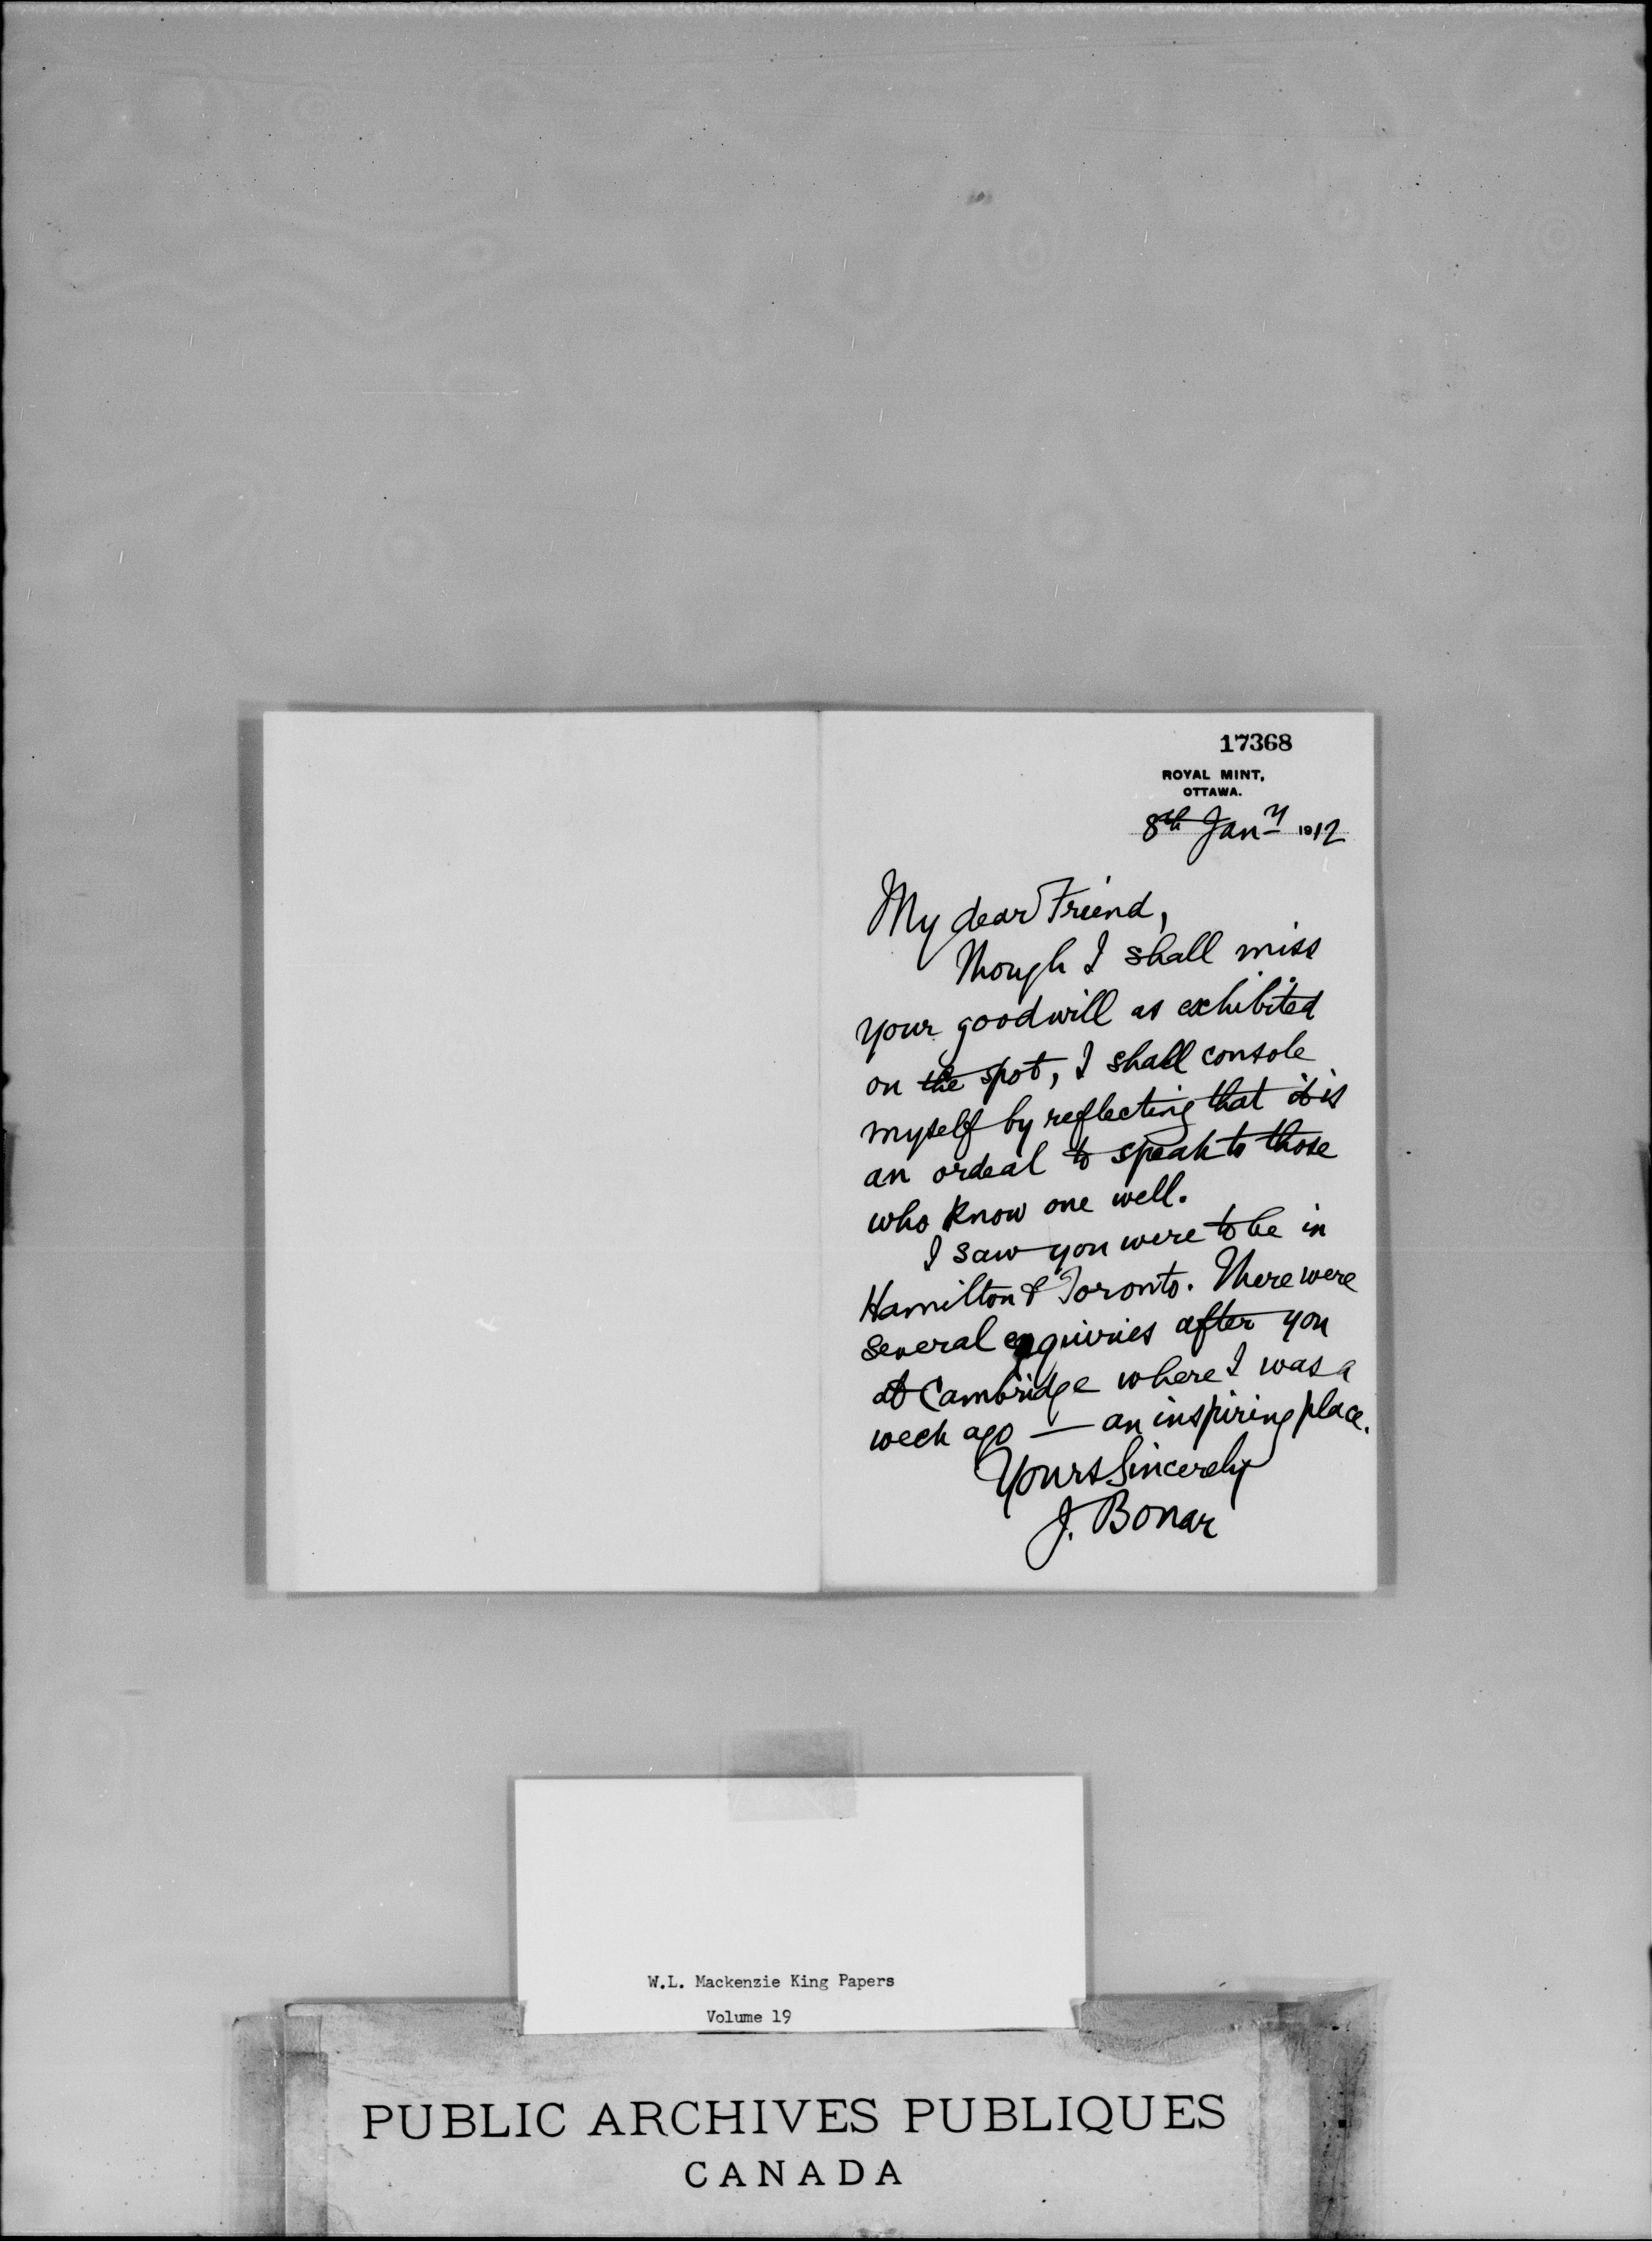 17368
ROYAL MINT,
OTTAWA.
8th Jany 1912
My dear Friend,
Though I shall miss
your goodwill as exhibited
on the spot, I shall console
myself by reflecting that it is
an ordeal to speak to those
who know one well.
I saw you were to be in
Hamilton & Toronto. There were
several enquiries after you
at Cambridge where I was a
week ago — an inspiring place.
Yours Sincerely
J. Bonar
W.L. Mackenzie King Papers
Volume 19
PUBLIC ARCHIVES PUBLIQUES
CANADA